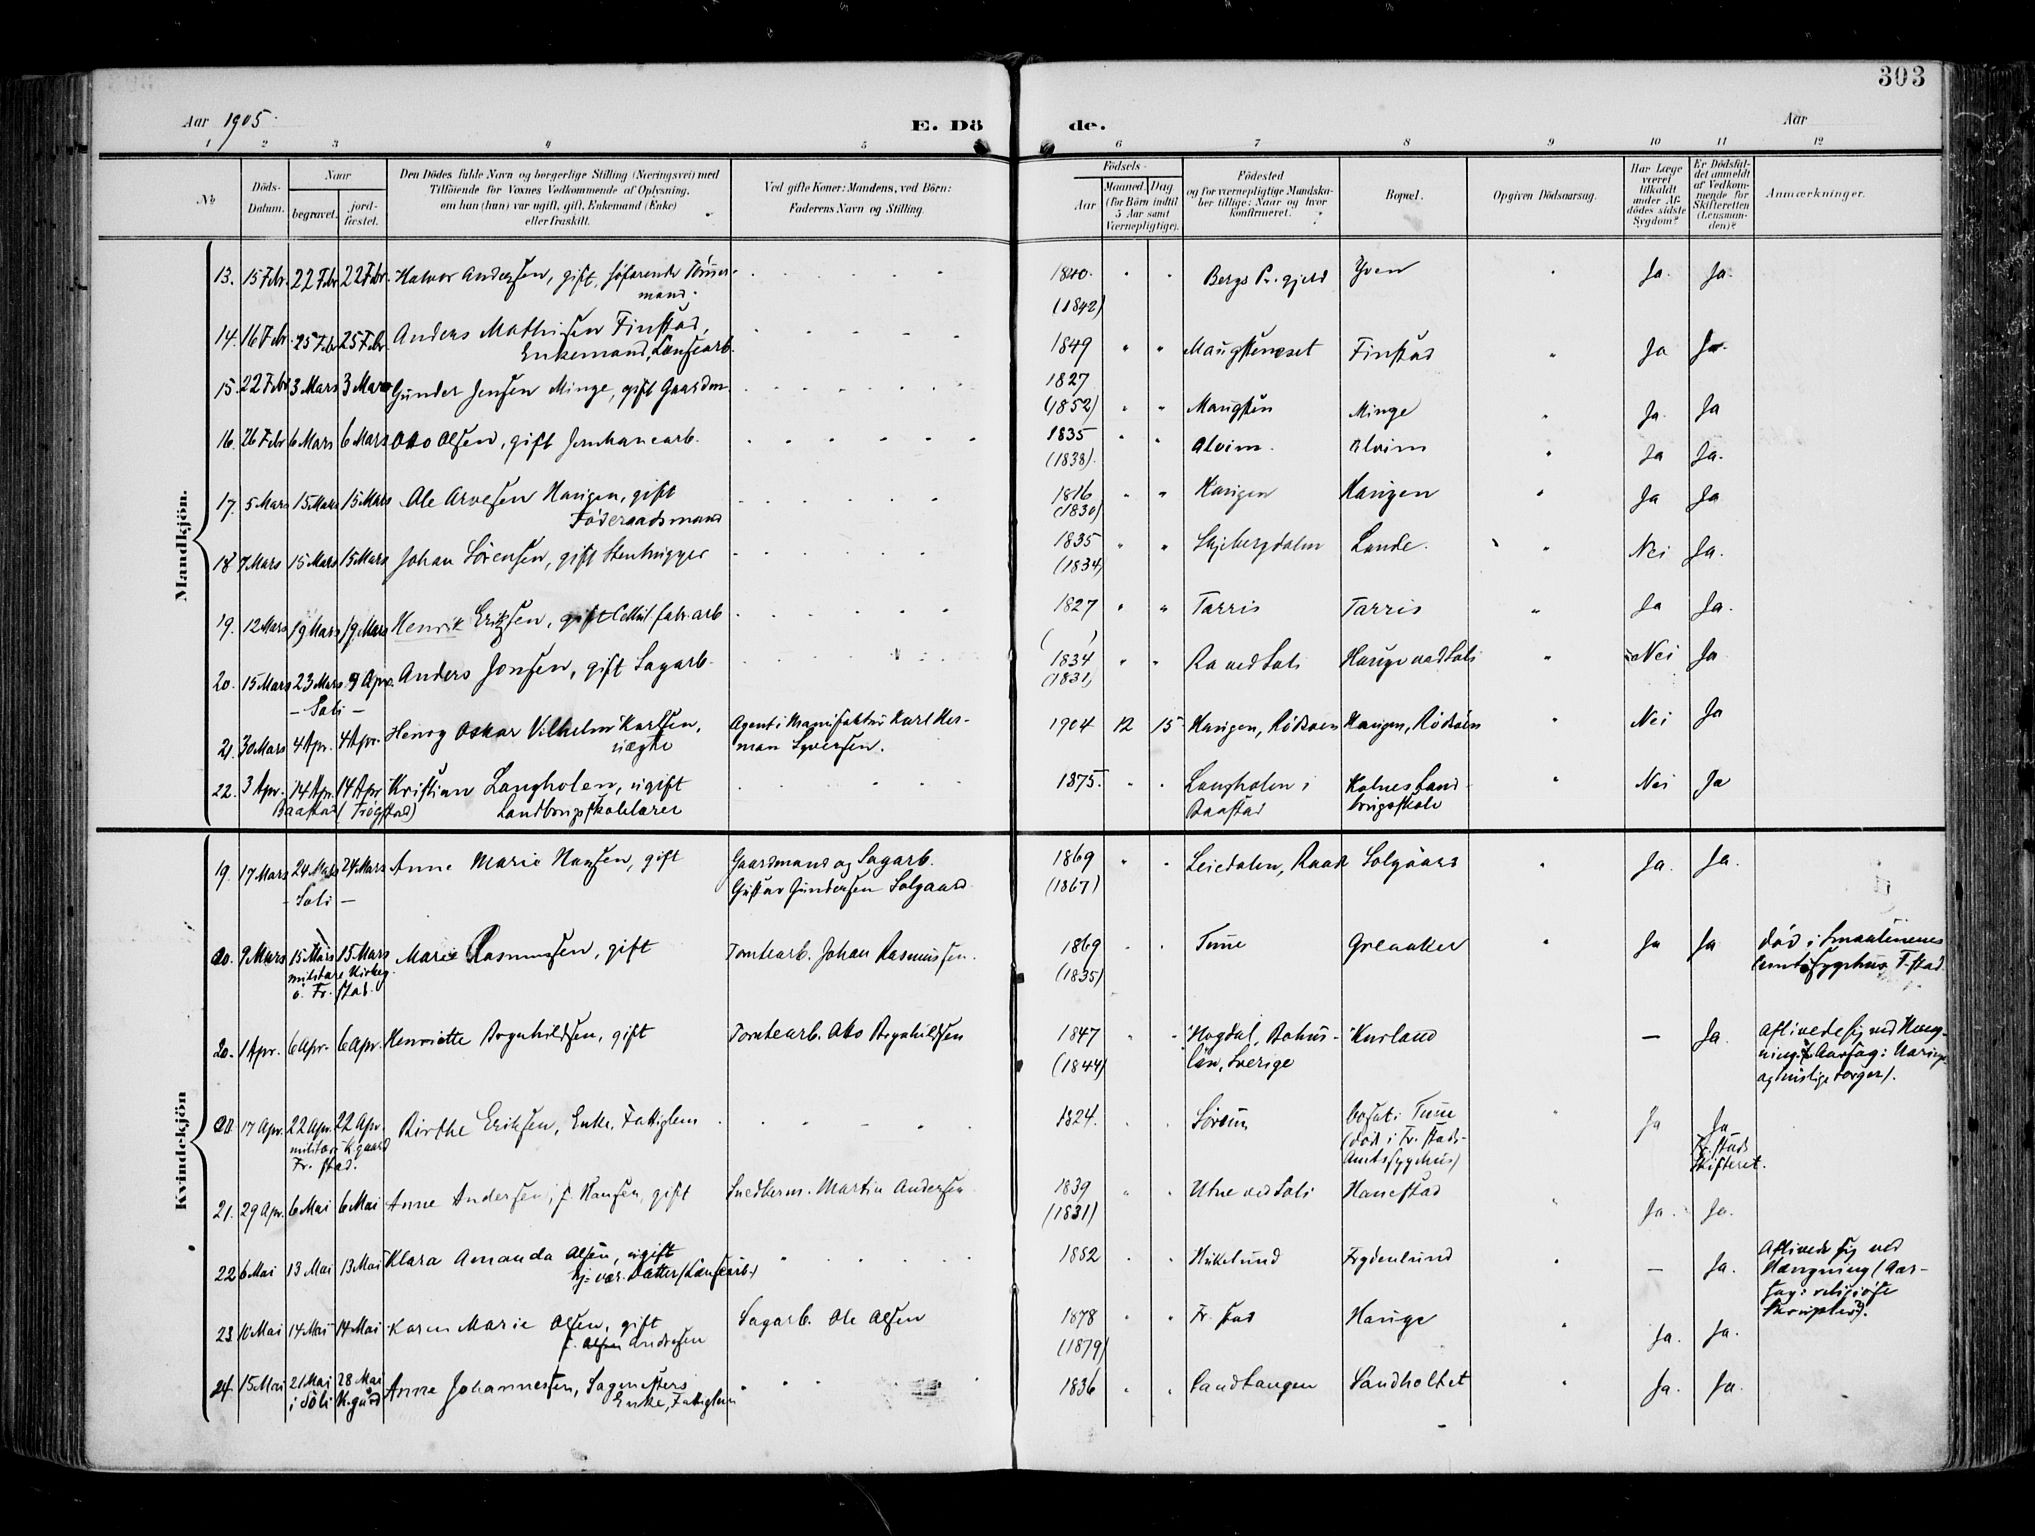 303
Aar 1905.
E. Dö
de.
Aar
1 2 3 4 5 6 7 8 9 10 11 12
No
Döds-Datum.
Naar
begravet.
jord-fæstet.
Den Dödes fulde Navn og borgerlige Stilling (Næringsvei) med
Tilföiende for Voxnes Vedkommende af Oplysning,
om han (hun) var ugift, gift, Enkemand (Enke)
eller fraskilt.
Ved gifte Koner: Mandens, ved Börn:
Faderens Navn og Stilling.
Födsels-
Aar
Maaned. Dag
(for Börn indtil
5 Aar samt
Værnepligtige).
Födested
og for værnepligtige Mandska-
ber tillige: Naar og hvor
konfirmeret.
Bopæl.
Opgiven Dödsaarsag.
Har Læge
været
tilkaldt
under Af-
dödes sidste
Sygdom?
Er Dödsfal-
det anmeldt
af Vedkom-
mende for
Skifteretten
(Lensman-
den)?
Anmærkninger.
Mandkjön.
13. 15 Febr. 22 Febr 22 Febr. Halvor Andersen, gift, söfarende Tömmer- 1840. Bergs Pr.gjeld Yven Ja. Ja.
mand. (1842)
14. 16 Febr. 25 Febr 25 Febr. Anders Mathisen Finstad, 1849 Finstad Ja Ja.
Enkemand,
15. 22 Febr 3 Mars 3 Mars Gunder Jensen Minge, gift Gaardm. 1827 Minge Ja. Ja
(1852)
16. 26 Febr 6 Mars 6 Mars Otto Olsen, gift 1835 Alvim. Alvim Ja Ja.
(1838).
17. 5 Mars 15 Mars 15 Mars Ole Arvesen Haugen, gift 1816 Haugen Haugen Ja Ja
Föderaadsmand (1830)
18 7 Mars 15 Mars 15 Mars Johan Sörensen, gift Stenhugger 1835 Skjebergdalen Lande. Nei Ja.
(1834)
19. 12 Mars 19 Mars 19 Mars Henrik Eriksen, gift Cellul.fabr.arb 1827 Tarris Tarris Ja Ja.
( )
20. 15 Mars 23 Mars 9 Apr. Anders Jonsen, gift Sagarb. 1834 Ra ved Soli Hauge ved Soli Nei Ja
- Soli - (1831)
21. 30 Mars 4 Apr. 4 Apr. Henry Oskar Vilhelm Karlsen, Agent i Manufaktur Karl Her- 1904 12 15 Haugen, Rödsøen Haugen, Rödsøen Nei Ja
uægte man Syversen.
22. 3 Apr. 14 Apr. 14 Apr Kristian Langholen, ugift 1875. Langholen i Kalnes Land- Nei Ja
Baastad (Trögstad) Landbrugsskolelærer Baastad brugsskole
Kvindekjön
19. 17 Mars 24 Mars 24 Mars Anne Marie Hansen, gift Gaardmand og Sagarb. 1869 Leiedalen, Raade Solgaard Ja. Ja.
- Soli - Gustav Gundersen Solgaard. (1867)
20. 9 Mars 15 Mars 15 Mars Marie Rasmussen, gift Tomtearb. Johan Rasmussen. 1869 Tune Greaaker Ja Ja död i Smaalenenes
militære Kirkeg. (1835) amtssygehus F-stad.
i Fr. stad.
20. 1 Apr. 6 Apr. 6 Apr. Henriette Bognhildsen, gift Tomtearb. Otto Bognhildsen 1847 Hogdal, Bohus- Kurland — Ja. Aflivede sig ved Hæng-
(1844) län, Sverige ning. (Aarsag: Næring-
og huslige sorger).
20. 17 Apr. 22 Apr. 22 Apr. Birthe Eriksen, Enke, Fattiglem 1824. Sörum bosat i Tune Ja Ja
militær K.gaard (död i Fr. stads- Fr. stads
Fr. stad. Amtssygehus) Skifteret.
21. 29 Apr. 6 Mai 6 Mai Anne Andersen, f. Hansen, gift Snedkerm. Martin Andersen 1839 Utne ved Soli Hanestad Ja. Ja.
(1831)
22 6 Mai 13 Mai 13 Mai Klara Amanda Olsen, ugift 1882 Frydenlund — Ja. Aflivede sig ved
Hj. vær. Datter Hængning (Aar-
sag: religiöse
Skrupler).
23. 10 Mai 14 Mai 14 Mai Karen Marie Olsen, gift Sagarb. Ole Olsen 1878 Fr. stad Hauge Ja. Ja.
f. Andresen (1879)
24. 15 Mai 21 Mai 28 Mai Anne Johannessen, Sagmesters 1836 Sandtangen Sandholtet Ja. Ja.
i Soli K.gård Enke, Fattiglem